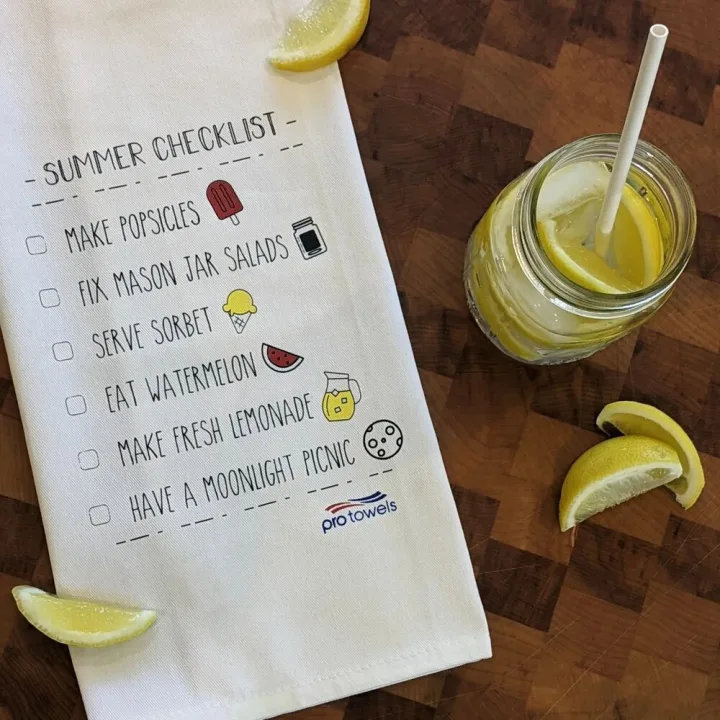 - SUMMER CHECKLIST -
MAKE POPSICLES
FIX MASON JAR SALADS
SERVE SORBET
EAT WATERMELON
MAKE FRESH LEMONADE
HAVE A MOONLIGHT PICNIC
pro towels